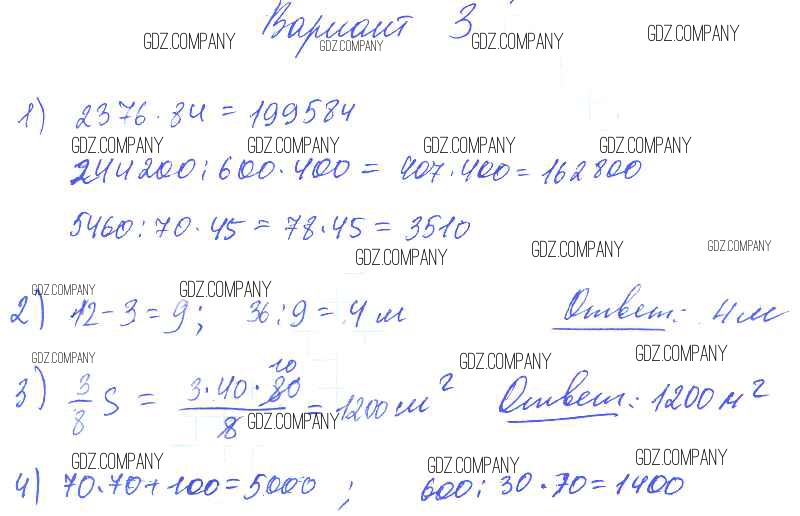 Вариант 3
GDZ.COMPANY GDZ.COMPANY GDZ.COMPANY GDZ.COMPANY
1) 2376 · 84 = 199584
GDZ.COMPANY GDZ.COMPANY GDZ.COMPANY GDZ.COMPANY
244200 : 600 · 400 = 407 · 400 = 162800
5460 : 70 · 45 = 78 · 45 = 3510
GDZ.COMPANY GDZ.COMPANY GDZ.COMPANY
GDZ.COMPANY GDZ.COMPANY
2) 12 - 3 = 9; 36 : 9 = 4 м Ответ: 4 м
GDZ.COMPANY GDZ.COMPANY GDZ.COMPANY
3) 3/8 S = 3 · 40 · 80 10 / 8 = 1200 м² Ответ: 1200 м²
GDZ.COMPANY
GDZ.COMPANY GDZ.COMPANY GDZ.COMPANY
4) 70 · 70 + 100 = 5000 ; 600 : 30 · 70 = 1400